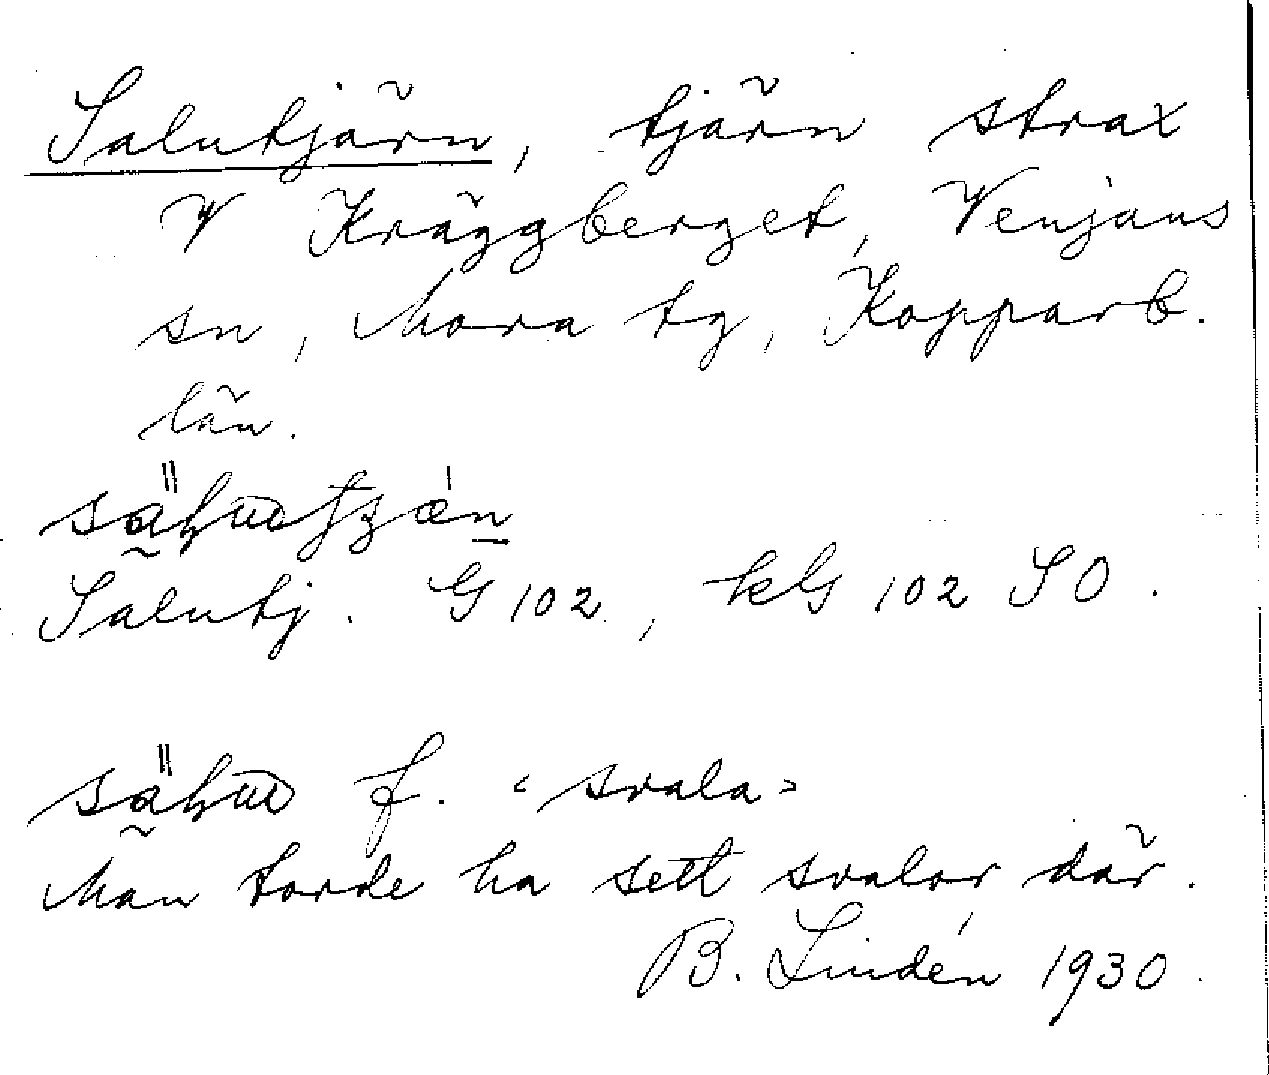 Salutjärn, tjärn strax
V Kräggberget, Venjans
sn, Mora tg, Kopparb.
län.
Sälutj. G 102, kG 102 SO.
f. "svala"
Man torde ha sett svalor där.
B. Lindén 1930.